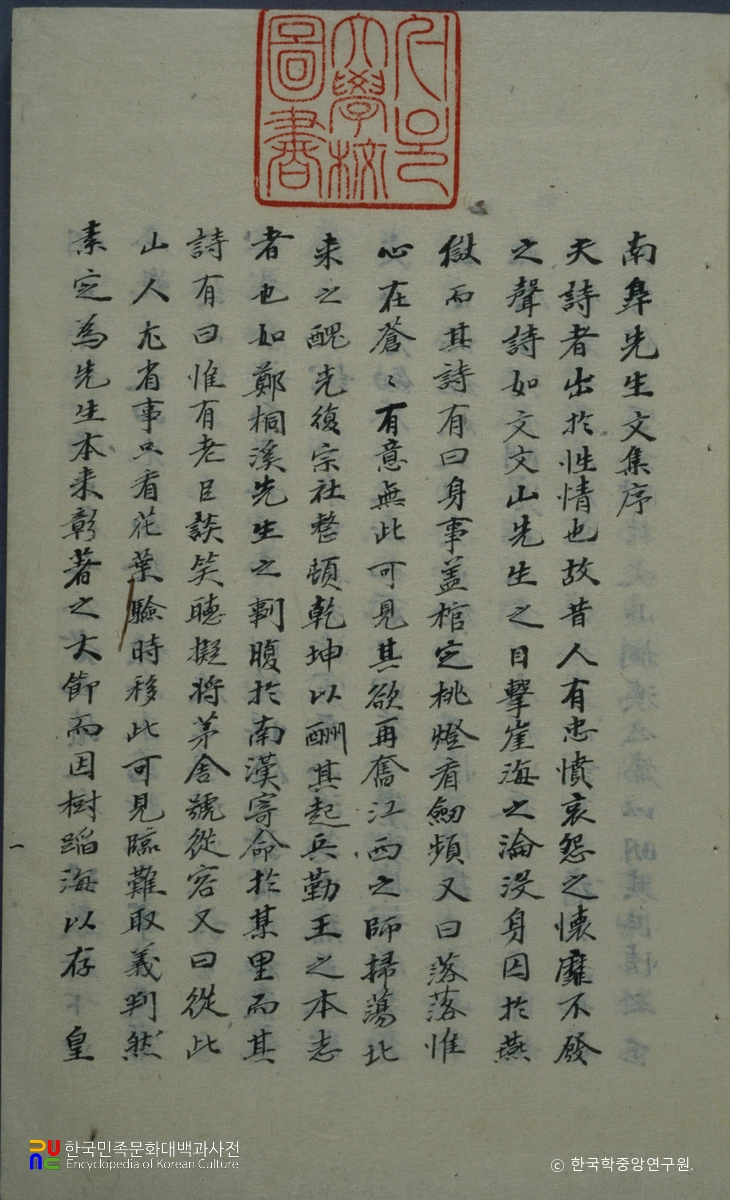 南皐先生文集序
夫詩者出於性情也故昔人有忠憤哀怨之懷靡不發
之聲詩如文文山先生之目擊崖海之淪沒身囚於燕
獄而其詩有曰身事盖棺定桃燈看劒頻又曰落落惟
心在蒼〻有意無此可見其欲再奮江西之師掃蕩北
来之醜光復宗社整頓乾坤以酬其起兵勤王之本志
者也如鄭桐溪先生之剚腹於南漢寄命於某里而其
詩有曰惟有老臣談笑聽擬将茅舍號從容又曰從此
山人尤省事只看花葉驗時移此可見臨難取義判然
素定為先生本来彰著之大節而因樹蹈海以存 皇
大學校
圖書
한국민족문화대백과사전
Encyclopedia of Korean Culture
© 한국학중앙연구원.